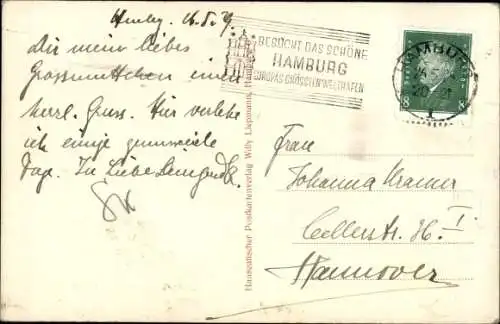 Hmbg. 16.5.29
Dir mein liebes
Grossmuttchen einen
herzl. Gruss. Hier verlebe
ich einige genussreiche
Tage. In Liebe
BESUCHT DAS SCHÖNE
HAMBURG
EUROPAS GRÖSSTEN WELTHAFEN
HAMBURG
8
8
Hanseatischer Postkartenverlag Willy Liepmann, Hamburg
Frau
Johanna Kramer
Cellerstr. 36 I
Hannover